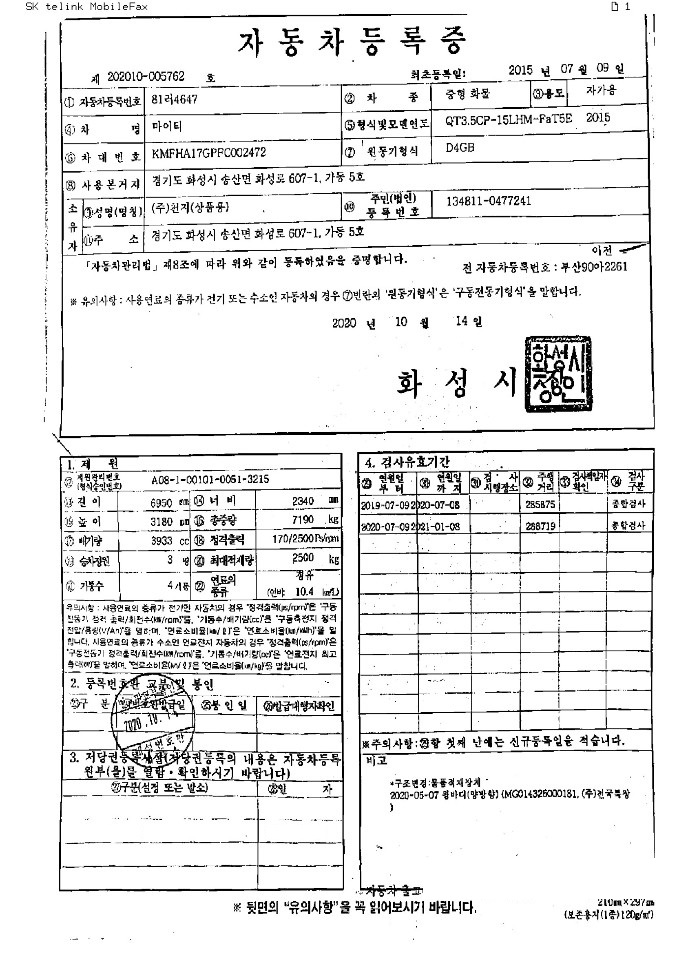 SK telink MobileFax 1
자동차등록증
제 202010-005762 호 최초등록일: 2015 년 07 월 09 일
① 자동차등록번호 81러4647 ② 차 종 중형 화물 ③용도 자가용
④ 차 명 마이티 ⑤형식및모델연도 QT3.5CP-15LHM-FaT5E 2015
⑥ 차 대 번 호 KMFHA17GPFC002472 ⑦ 원동기형식 D4GB
⑧ 사용본거지 경기도 화성시 송산면 화성로 607-1, 가동 5호
소유자 ⑨성명(명칭) (주)원지(상품용) ⑩ 주민(법인)등록번호 134811-0477241
⑪주 소 경기도 화성시 송산면 화성로 607-1, 가동 5호
「자동차관리법」 제8조에 따라 위와 같이 등록하였음을 증명합니다.
이전
전 자동차등록번호 : 부산90아2261
※ 유의사항 : 사용연료의 종류가 전기 또는 수소인 자동차의 경우 ⑦번란의 '원동기형식'은 '구동전동기형식'을 말합니다.
2020 년 10 월 14 일
화 성 시
화성시청인
1. 제 원
⑫ 제원관리번호(형식승인번호) A08-1-00101-0051-3215
⑬ 길 이 6950 mm ⑭ 너 비 2340 mm
⑮ 높 이 3180 mm ⑯ 총중량 7190 kg
⑰ 배기량 3933 cc ⑱ 정격출력 170/2500 Ps/rpm
⑲ 승차정원 3 명 ⑳ 최대적재량 2500 kg
㉑ 기통수 4 기통 ㉒ 연료의 종류 경유 (연비 10.4 km/L)
유의사항 : 사용연료의 종류가 전기인 자동차의 경우 "정격출력(ps/rpm)"은 "구동
전동기 정격 출력/회전수(kW/rpm)"를, "기통수/배기량(cc)"은 "구동축전지 정격
전압/용량(V/Ah)"을 말하며, "연료소비율(㎞/ℓ)"은 "연료소비율(㎞/kWh)"을 말
합니다. 사용연료의 종류가 수소인 연료전지 자동차의 경우 "정격출력(ps/rpm)"은
"구동전동기 정격출력/회전수(kW/rpm)"를, "기통수/배기량(cc)"은 "연료전지 최고
출력(kW)"을 말하며, "연료소비율(㎞/ℓ)"은 "연료소비율(㎞/kg)"을 말합니다.
2. 등록번호판 교부 및 봉인
㉓구 분 ㉔번호판발급일 ㉕봉 인 일 ㉖발급대행자확인
2020. 10. 14
3. 저당권등록사실(저당권등록의 내용은 자동차등록
원부(을)를 열람·확인하시기 바랍니다)
㉗구분(설정 또는 말소) ㉘일 자
4. 검사유효기간
㉙ 연월일부터 ㉚ 연월일까지 ㉛ 검 사 시행장소 ㉜ 주행거리 ㉝ 검사책임자확인 ㉞ 검사구분
2019-07-09 2020-07-08 285875 종합검사
2020-07-09 2021-01-08 288719 종합검사
※주의사항:㉙항 첫째 난에는 신규등록일을 적습니다.
비고
*구조변경:물품적재장치
2020-05-07 윙바디(양방향) (MG014326000181, (주)전국특장
)
자동차 출고
※ 뒷면의 "유의사항"을 꼭 읽어보시기 바랍니다.
210㎜×297㎜
(보존용지(1종)120g/㎡)